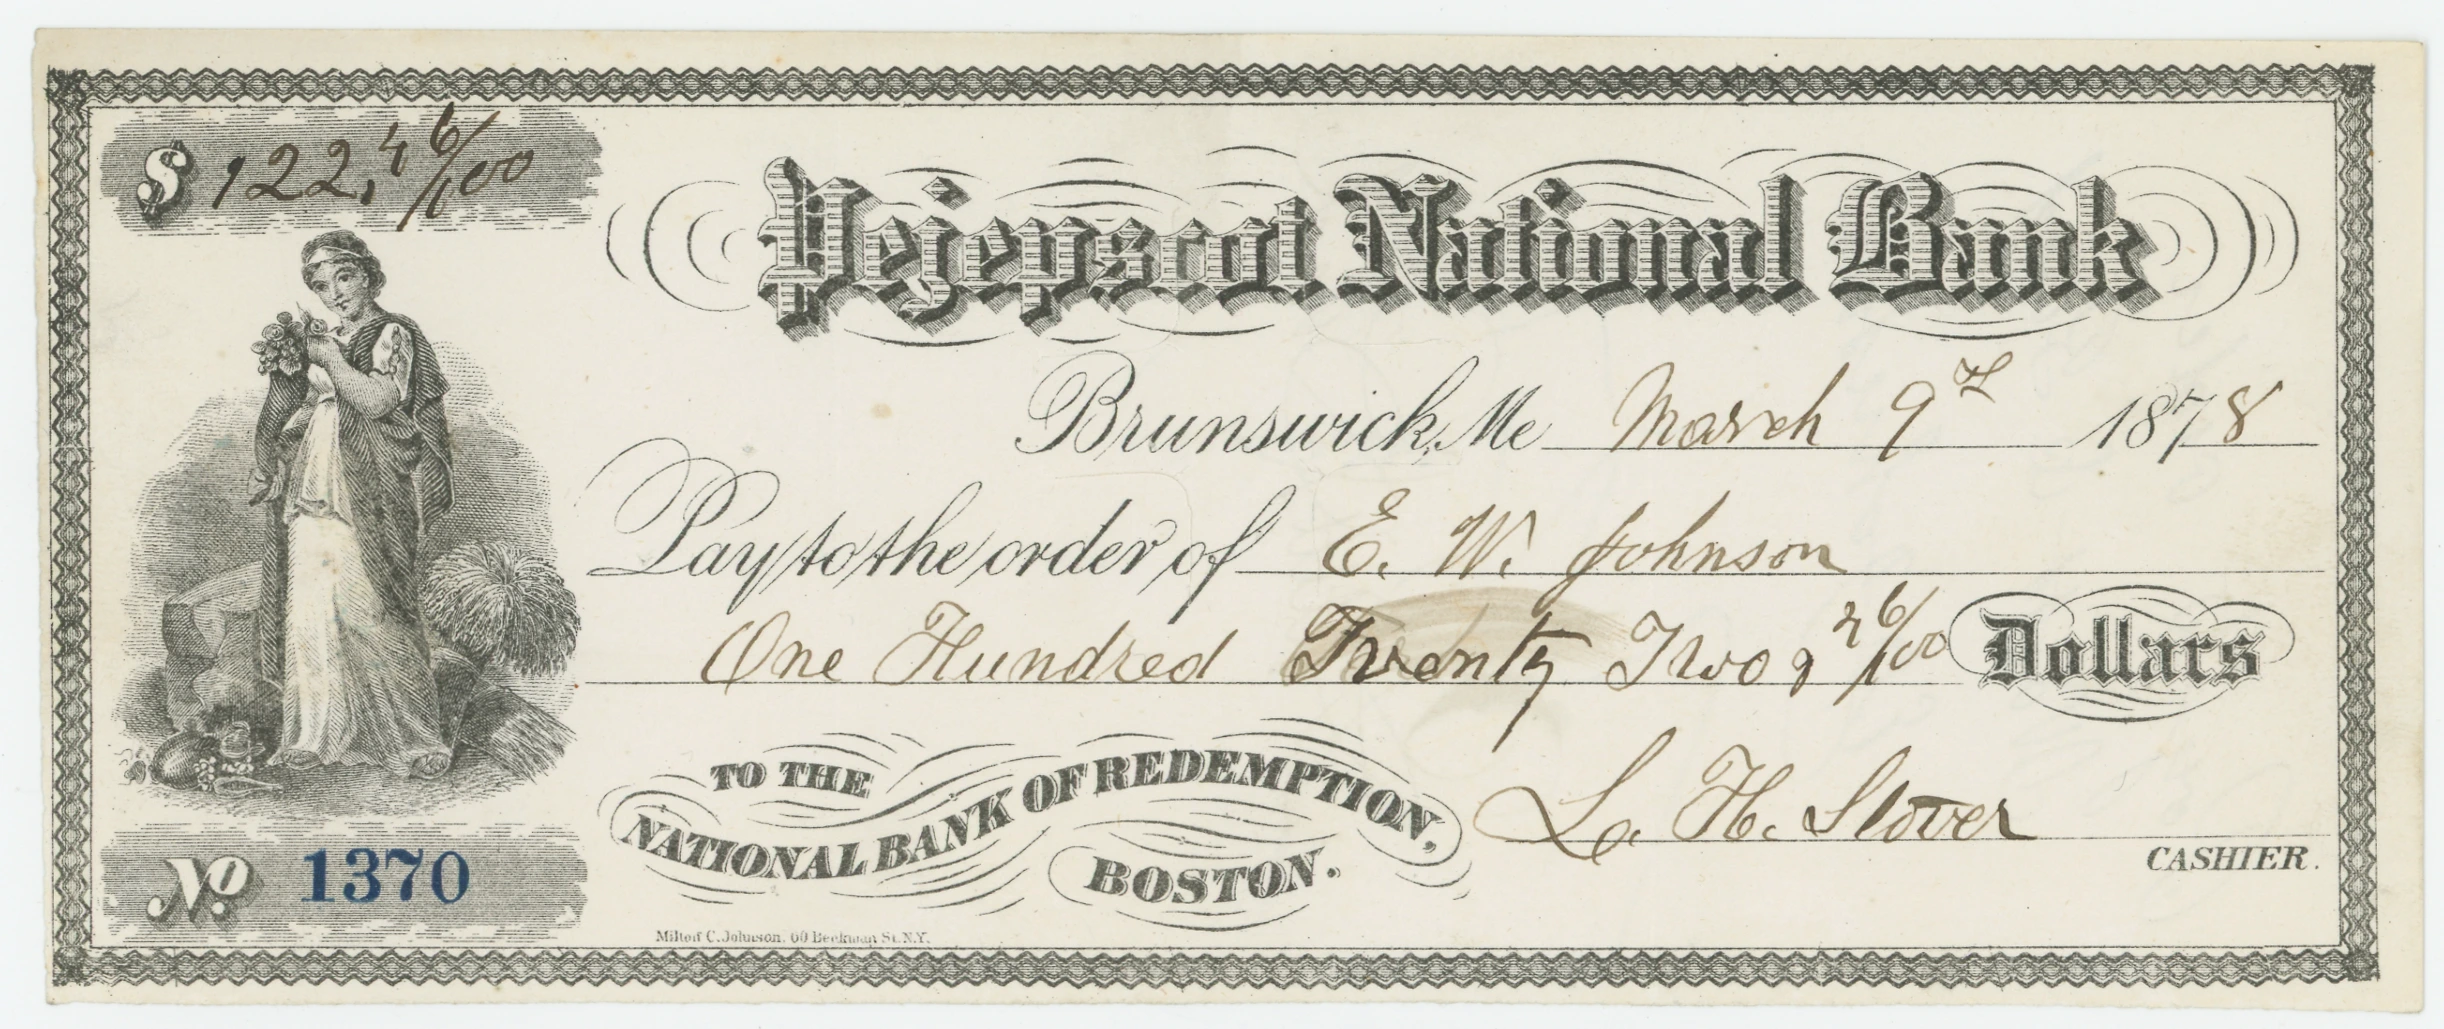 $ 122,46/100
Pejepscot National Bank
Brunswick, Me March 9th 1878
Pay to the order of E. W. Johnson
One Hundred Twenty Two, 46/100 Dollars
TO THE
NATIONAL BANK OF REDEMPTION,
BOSTON.
L. H. Stover
CASHIER.
No 1370
Milton C. Johnson, 60 Beekman St. N.Y.